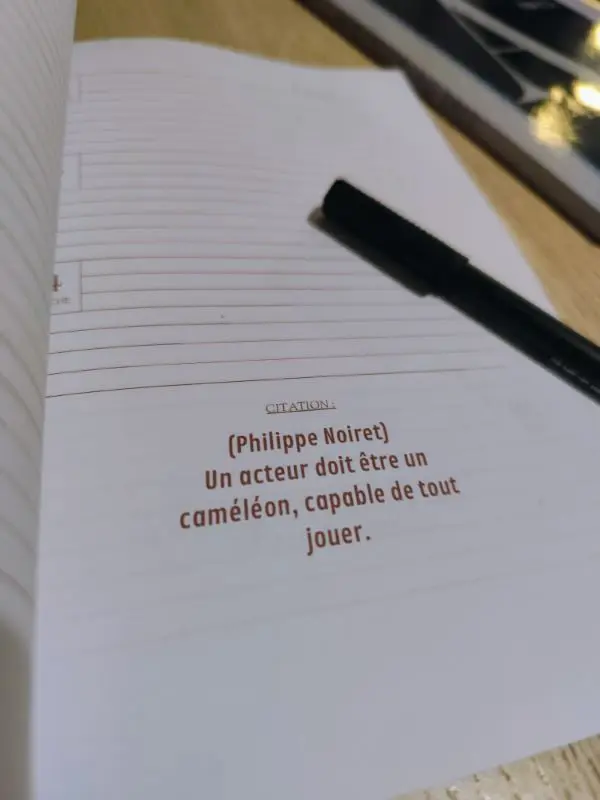 CITATION :
(Philippe Noiret)
Un acteur doit être un
caméléon, capable de tout
jouer.